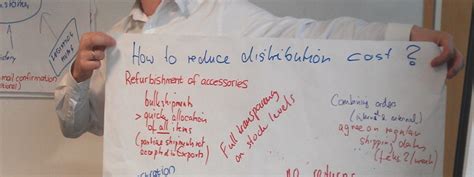 How to reduce distribution cost?
Refurbishment of accessories
bulkshipments
> quick allocation
of all items
(partial shipments not
accepted in exports)
Full transparency
on stock levels
Combining orders
(internal & external)
agree on regular
shipping dates
no returns
mal confirmation